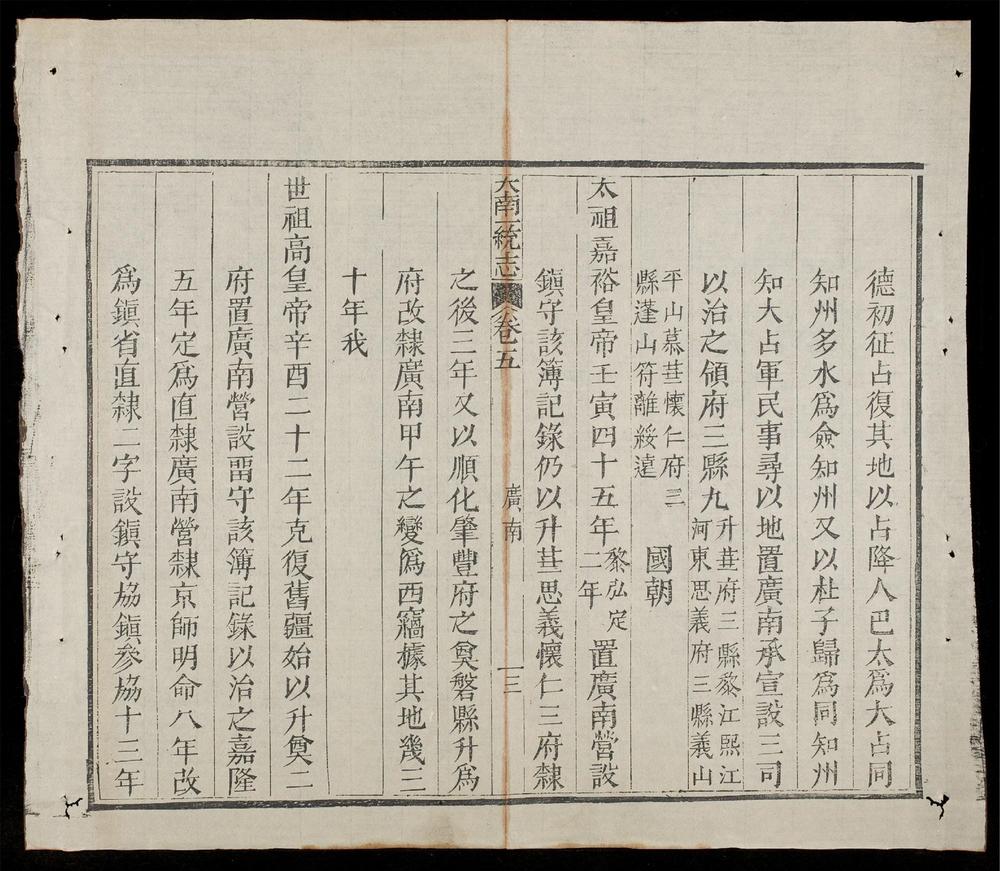 德初征占復其地以占降人巴太爲大占同
知州多水爲僉知州又以杜子歸爲同知州
知大占軍民事尋以地置廣南承宣設三司
以治之領府三縣九升華府三縣黎江熙江
河東思義府三縣義山
平山慕華懷仁府三
縣蓬山符離綏遠 國朝
太祖嘉裕皇帝壬寅四十五年黎弘定二年置廣南營設
鎮守該簿記錄仍以升華思義懷仁三府隸
大南一統志 卷五 廣南 一三
之後三年又以順化肇豐府之奠磐縣升爲
府改隸廣南甲午之變爲西竊據其地幾三
十年我
世祖高皇帝辛酉二十二年克復舊疆始以升奠二
府置廣南營設畱守該簿記錄以治之嘉隆
五年定爲直隸廣南營隸京師明命八年改
爲鎮省直隸二字設鎮守協鎮參協十三年